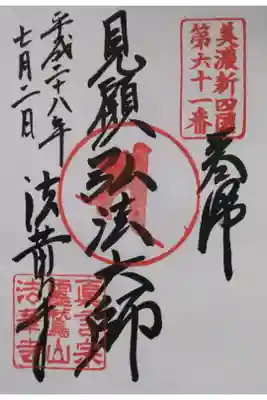 美濃新四国
第六十一番
奉拝
見願弘法大師
平成二十八年
七月二日
法華寺
真言宗
霊鷲山
法華寺